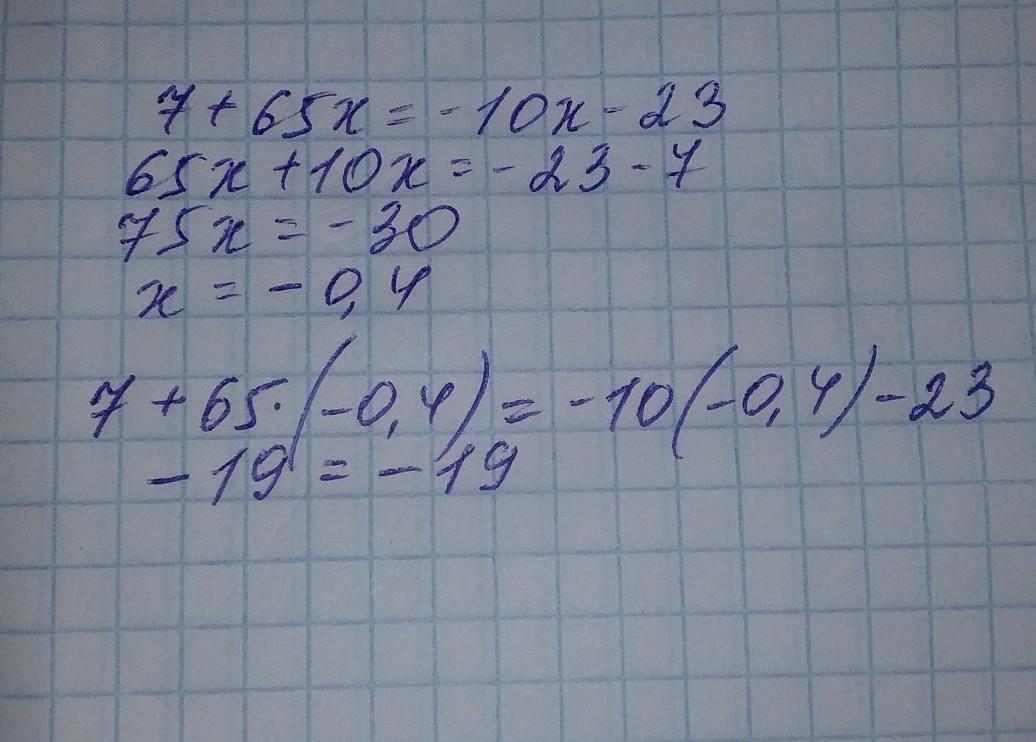 7 + 65x = -10x - 23
65x + 10x = -23 - 7
75x = -30
x = -0,4
7 + 65·(-0,4) = -10(-0,4) - 23
-19 = -19